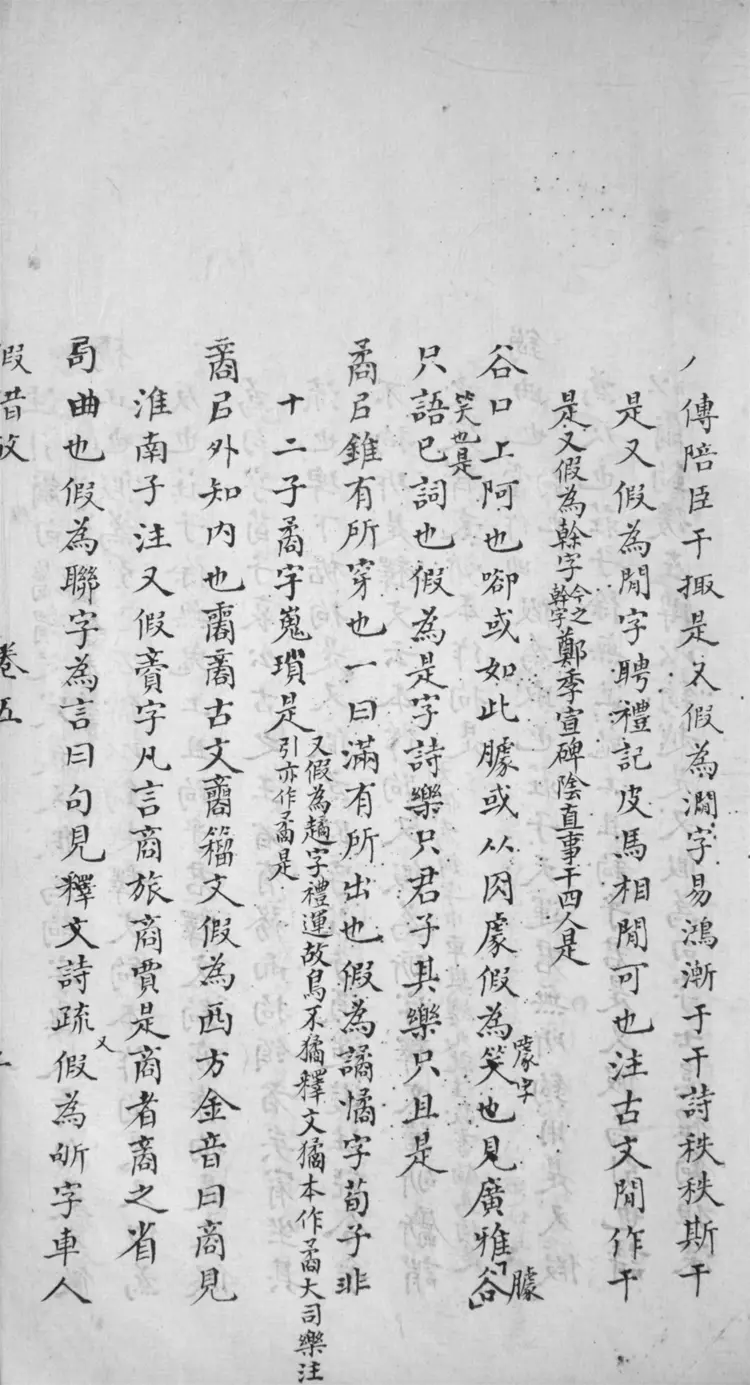 傳陪臣干掫是又假為澗字易鴻漸于干詩秩秩斯干
是又假為閒字聘禮記皮馬相閒可也注古文閒作干
是又假為榦字今之幹字鄭季宣碑陰直事干四人是
谷口上阿也㕁或如此臄或从肉豦假為笑也見廣雅谷
噱字
臄
笑也是
只語已詞也假為是字詩樂只君子其樂只且是
矞㠯錐有所穿也一曰滿有所出也假為譎憰字荀子非
十二子矞宇嵬瑣是又假為趫字禮運故鳥不獝釋文獝本作矞大司樂注引亦作矞是
商㠯外知内也古文籀文假為西方金音曰商見
淮南子注又假賣字凡言商旅商賈是商者之省
局曲也假為聯字為言曰句見釋文詩疏又假為斪字車人
假昔攷
卷五